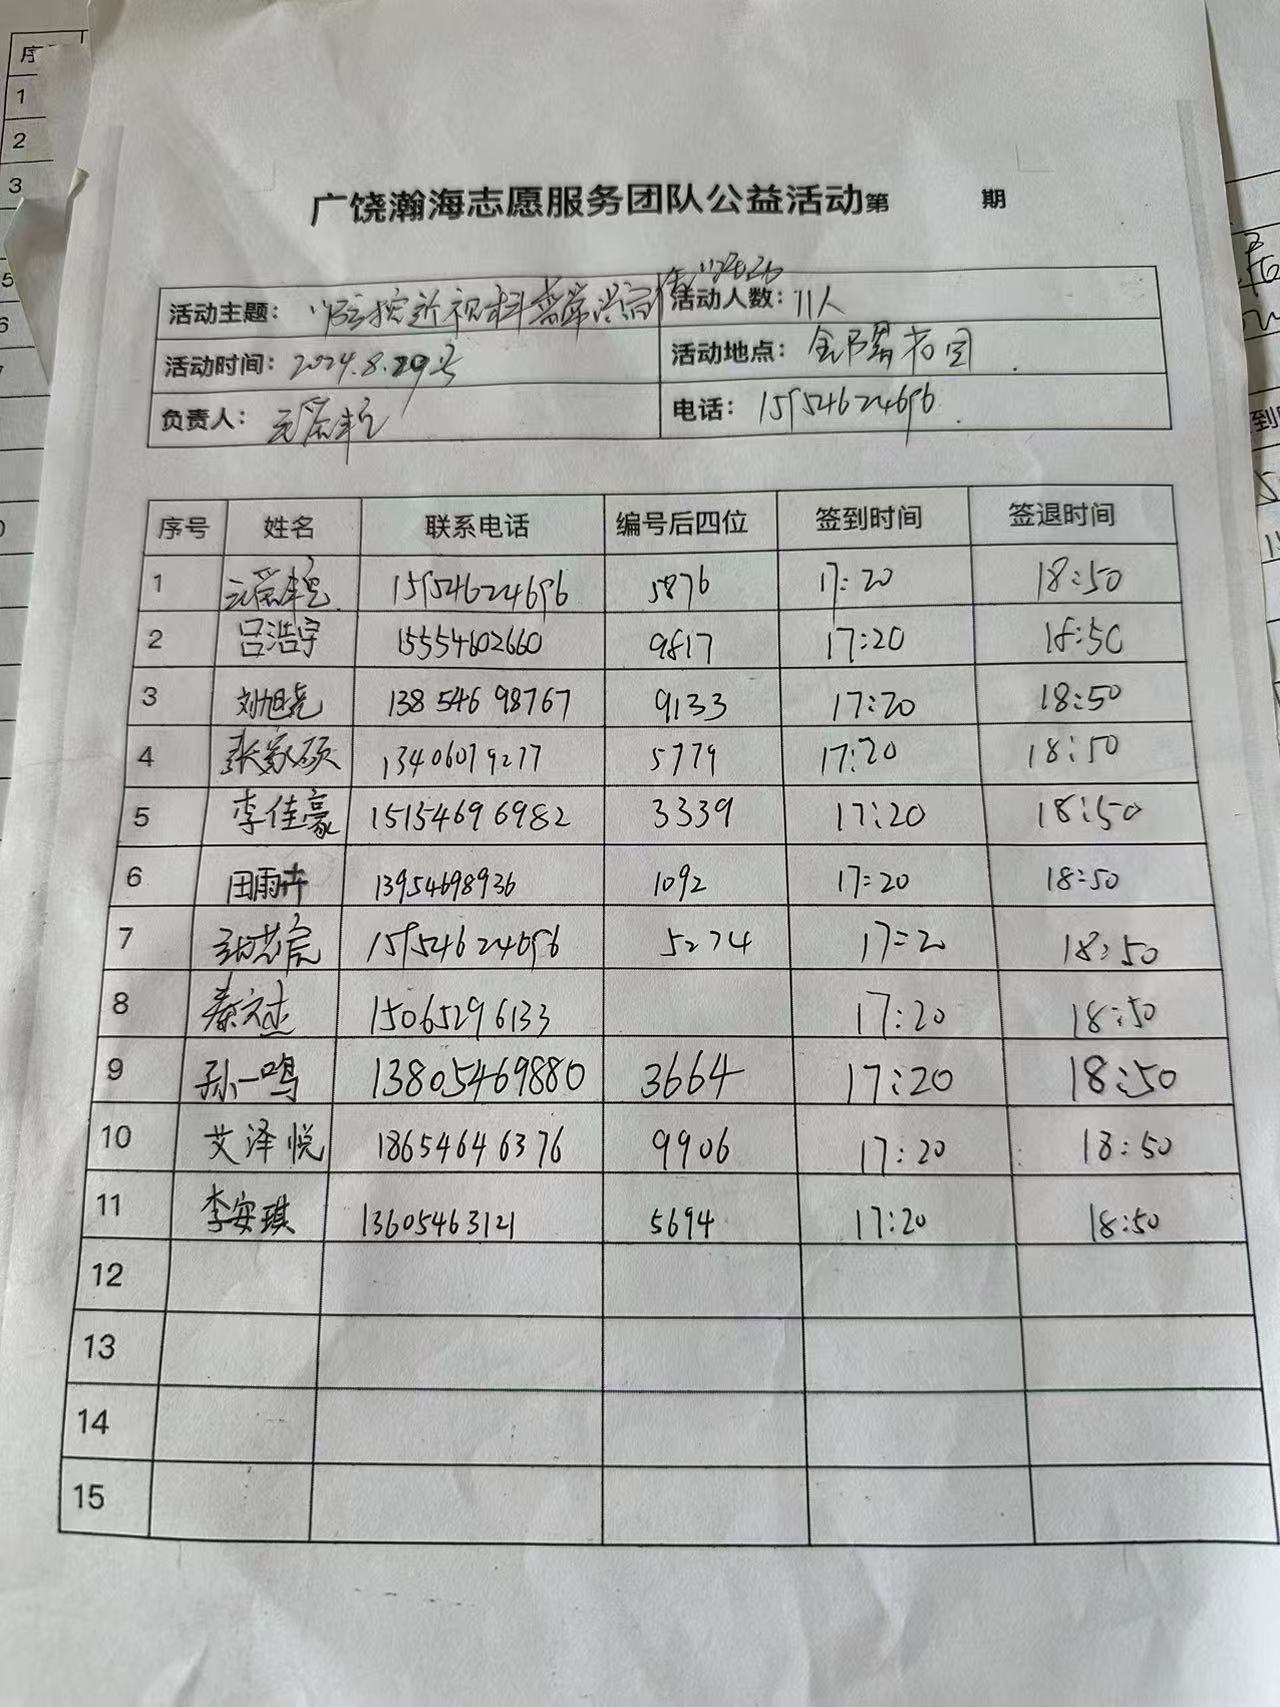 广饶瀚海志愿服务团队公益活动第 期
活动主题： 防控近视科普 活动人数：11人
活动时间：2024.8.29号 活动地点：金 花园
负责人： 电话：15954624696
序号 姓名 联系电话 编号后四位 签到时间 签退时间
1 15954624696 5876 17:20 18:50
2 吕浩宇 15554602660 9817 17:20 18:50
3 刘旭尧 13854698767 9133 17:20 18:50
4 张家硕 13406079277 5779 17:20 18:50
5 李佳豪 15154696982 3339 17:20 18:50
6 田雨卉 13954698936 1092 17:20 18:50
7 15954624696 5274 17:20 18:50
8 秦文杰 15065296133 17:20 18:50
9 孙一鸣 13805469880 3664 17:20 18:50
10 艾泽悦 18654646376 9906 17:20 18:50
11 李安琪 13605463121 5694 17:20 18:50
12
13
14
15